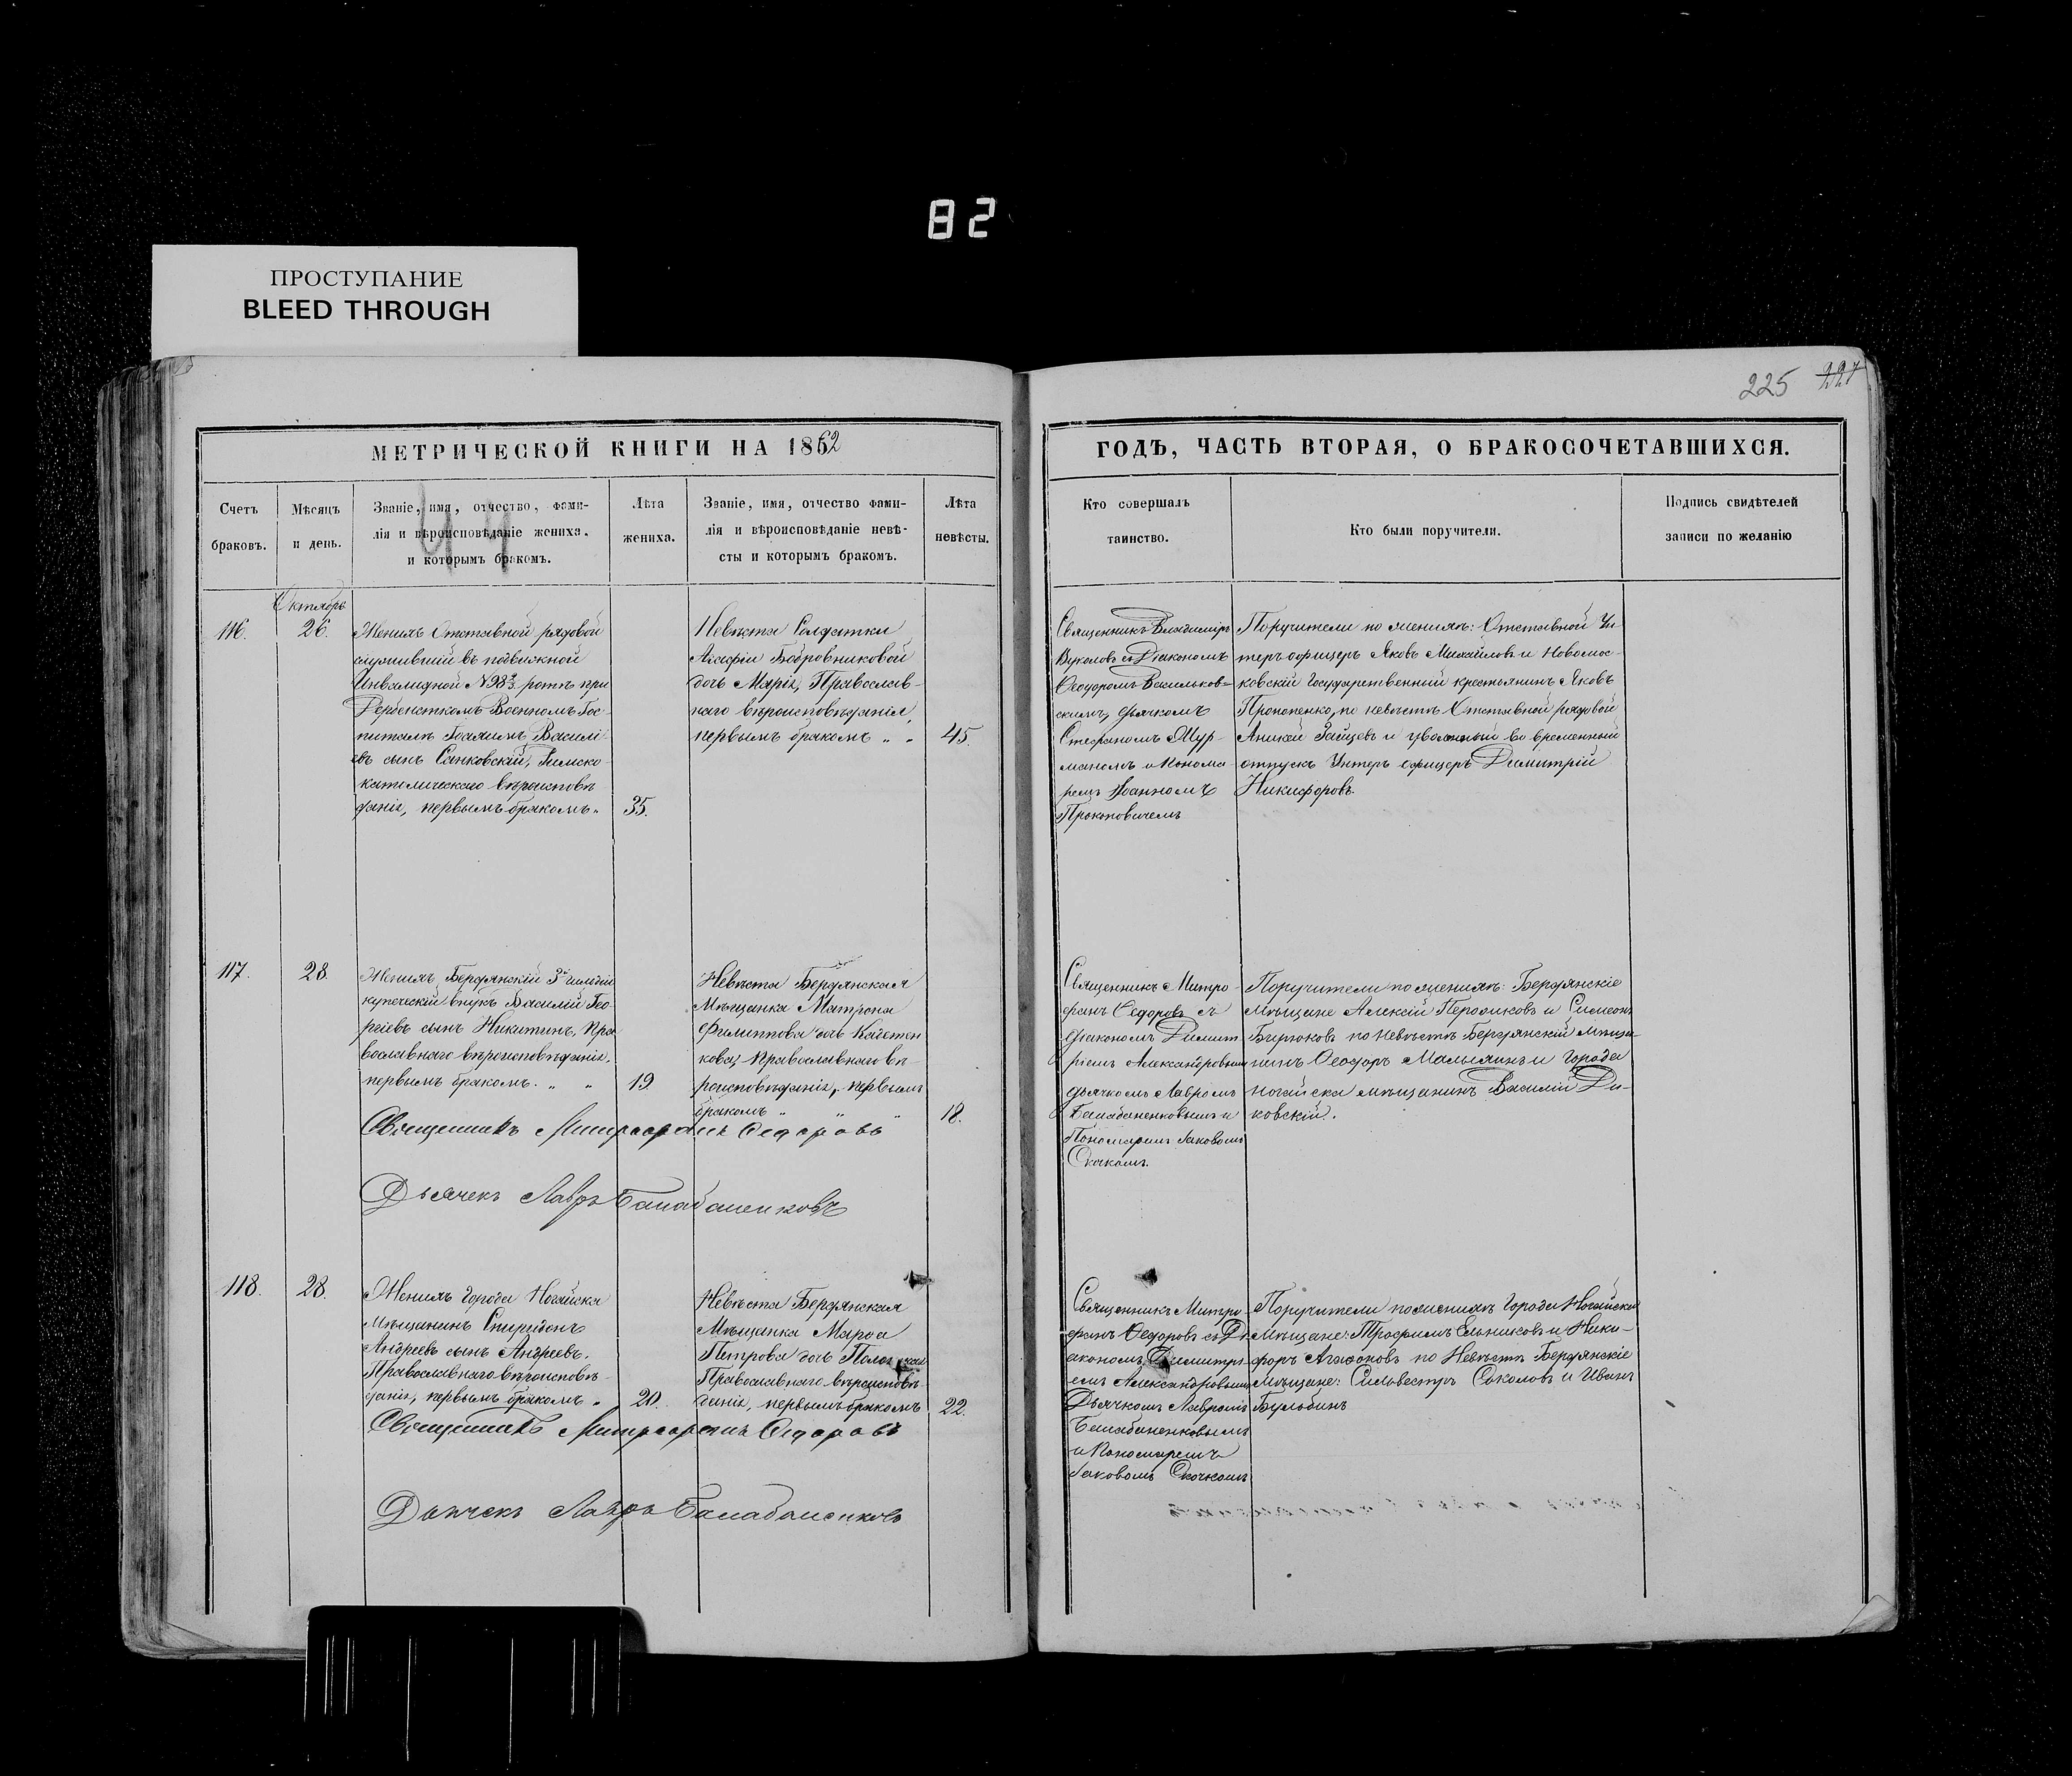 82
ПРОСТУПАНИЕ
BLEED THROUGH
225 227
МЕТРИЧЕСКОЙ КНИГИ НА 1862
Счетъ браковъ.
Мѣсяцъ и день.
Званіе, имя, отчество, фами-
лія и вѣроисповѣданіе жениха.
и которымъ бракомъ.
Лѣта жениха.
Званіе, имя, отчество фами-
лія и вѣроисповѣданіе невѣ-
сты и которымъ бракомъ.
Лѣта невѣсты.
Октябрь
116.
26.
Женихъ Отставной рядовой
служившій въ подвижной
Инвалидной № 98 ротѣ при
Военномъ Гос-
питалѣ Василі-
евъ сынъ Санковскій, Римско-
католическаго вѣроисповѣ
данія, первымъ бракомъ.
35.
Невѣста Солдатки
Агафіи Бобровниковой
дочь Марія, Православ-
наго вѣроисповѣданія,
первымъ бракомъ " "
45.
117.
28.
Женихъ Бердянскій 3й гильдіи
купеческій внукъ Василій Гео-
ргіевъ сынъ Никитинъ, Пра
вославнаго вѣроисповѣданія,
первымъ бракомъ. " "
19
Невѣста Бердянская
Мѣщанка Матрона
Филиппова дочь
кова, Православнаго вѣ-
роисповѣданія, первымъ
бракомъ " " "
18.
Священникъ Митрофанъ Ѳедоровъ
Дьячекъ Лавръ Балабаненковъ
118.
28.
Женихъ Города Ногайска
Мѣщанинъ Спиридонъ
Андреевъ сынъ Андреевъ,
Православнаго вѣроисповѣ-
данія, первымъ бракомъ "
20.
Невѣста Бердянская
Мѣщанка Марѳа
Петрова дочь
Православнаго вѣроисповѣ-
данія, первымъ бракомъ
22.
Священникъ Митрофанъ Ѳедоровъ
Дьячекъ Лавръ Балабаненковъ
ГОДЪ, ЧАСТЬ ВТОРАЯ, О БРАКОСОЧЕТАВШИХСЯ.
Кто совершалъ таинство.
Кто были поручители.
Подпись свидѣтелей записи по желанію
Священникъ Владиміръ
Вуколовъ съ Діакономъ
Ѳеодоромъ Васильков-
скимъ, дьячкомъ
Стефаномъ Шур-
маномъ и Понома
ремъ Іоанномъ
Прокоповичемъ
Поручители по женихѣ: Отставной Ун
теръ офицеръ Яковъ Михайловъ и Новомос-
ковскій Государственный крестьянинъ Яковъ
Прокопенко, по невѣстѣ Отставной рядовой
Аникей Зайцевъ и уволенный во временный
отпускъ Унтеръ офицеръ Димитрій
Никифоровъ.
Священникъ Митро-
фанъ Ѳедоровъ съ
діакономъ Димит
ріемъ Александровымъ
дьячкомъ Лавромъ
Балабаненковымъ и
Пономаремъ Іаковомъ
Скочкомъ.
Поручители по женихѣ: Бердянскіе
Мѣщане Алексій и Симеонъ
Бирюковъ по Невѣстѣ Бердянскій Мѣща-
нинъ Ѳеодоръ и Города
Ногайска мѣщанинъ Василій Ди-
ковскій.
Священникъ Митро-
фанъ Ѳедоровъ съ Ді
акономъ Димитрі-
емъ Александровымъ
Дьячкомъ Лавромъ
Балабаненковымъ
и Пономаремъ
Іаковомъ Скочкомъ
Поручители по женихѣ Города Ногайска
Мѣщане: Трофимъ Ельниковъ и Ники-
форъ Агафоновъ по Невѣстѣ Бердянскіе
Мѣщане: Сильвестръ Соколовъ и Иванъ
Бульбинъ